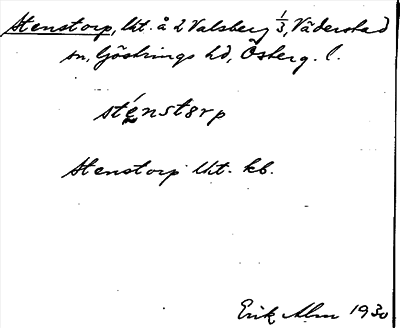 Stenstorp, lht. å 2 Valsberg 1/3, Väderstad
sn, Göstrings hd, Österg. l.
sténstørp
Stenstorp lht. kb.
Erik Alm 1930